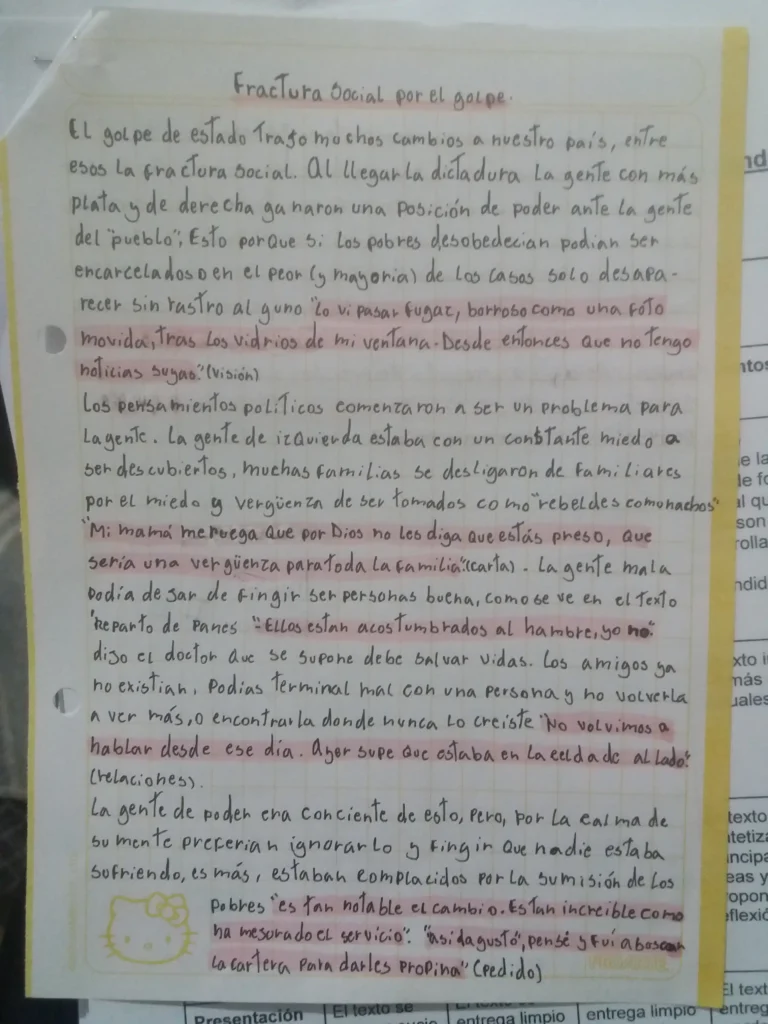 Fractura social por el golpe.
El golpe de estado trajo muchos cambios a nuestro país, entre
esos la fractura social. Al llegar la dictadura la gente con más
plata y de derecha ganaron una posición de poder ante la gente
del "pueblo", Esto porque si los pobres desobedecian podian ser
encarcelados o en el peor (y mayoria) de los casos solo desapa-
recer sin rastro alguno "lo vi pasar fugaz, borroso como una foto
movida, tras los vidrios de mi ventana. Desde entonces que no tengo
noticias suyas." (visión)
Los pensamientos políticos comenzaron a ser un problema para
la gente. La gente de izquierda estaba con un constante miedo a
ser descubiertos, muchas familias se desligaron de familiares
por el miedo y vergüenza de ser tomados como "rebeldes comunachos"
"Mi mamá me ruega que por Dios no les diga que estás preso, que
sería una vergüenza para toda la familia" (carta). La gente mala
podía dejar de fingir ser personas buena, como se ve en el texto
"Reparto de Panes" "Ellos estan acostumbrados al hambre, yo no."
dijo el doctor que se supone debe salvar vidas. Los amigos ya
no existían, podías terminal mal con una persona y no volverla
a ver más, o encontrarla donde nunca lo creiste "No volvimos a
hablar desde ese día. Ayer supe que estaba en la celda de al lado."
(relaciones).
La gente de poder era conciente de esto, pero, por la calma de
su mente preferian ignorarlo y fingir que nadie estaba
sufriendo, es más, estaban complacidos por la sumisión de los
pobres "es tan notable el cambio. Es tan increible como
ha mejorado el servicio". "asi da gusto", pensé y fui a buscar
la cartera para darles propina" (pedido)
Presentación
El texto se
entrega limpio
entrega limpio